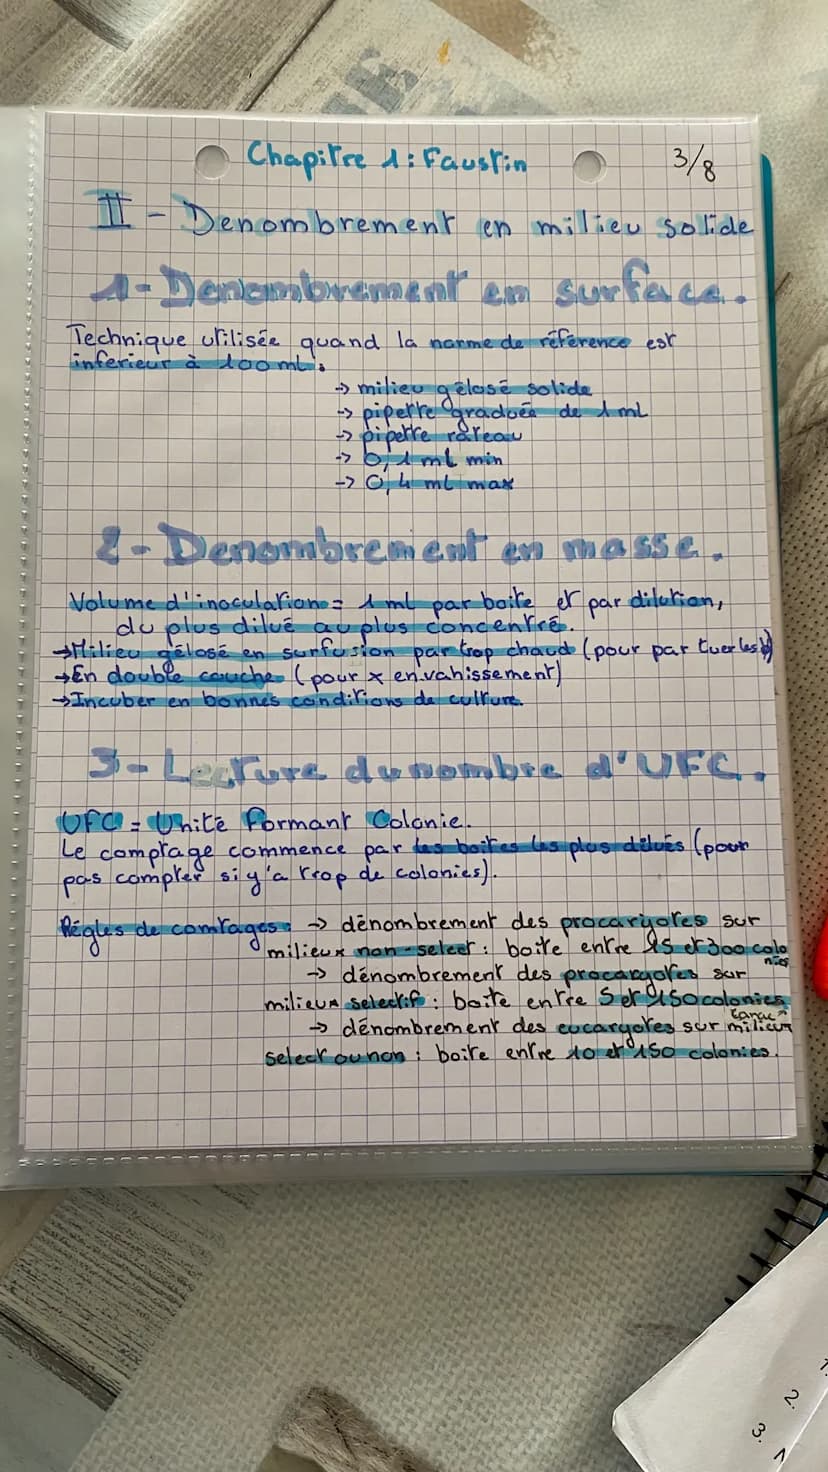 Chapitre 1 : Faustin
3/8
II - Denombrement en milieu solide
1 - Denombrement en surface.
Technique utilisée quand la norme de référence est
inferieur à 100 mL.
→ milieu gélosé solide
→ pipette graduée de 1 mL
→ pipette râteau
→ 0,1 mL min
→ 0,4 mL max
2 - Denombrement en masse.
Volume d'inoculation = 1 mL par boite et par dilution,
du plus dilué au plus concentré.
→ Milieu gélosé en surfusion par trop chaud (pour par tuer les b)
→ En double couche (pour x envahissement)
→ Incuber en bonnes conditions de culture.
3 - Lecture du nombre d'UFC.
UFC = Unité Formant Colonie.
Le comptage commence par les boites les plus dilués (pour
pas compter si y'a trop de colonies).
Régles de comtages : → dénombrement des procaryotes sur
milieux non-select : boite entre 15 et 300 colo
nies
→ dénombrement des procaryotes sur
milieux selectif : boite entre 5 et 150 colonies
→ dénombrement des eucaryotes sur milieux
select ou non : boite entre 10 et 150 colonies.
2.
3.